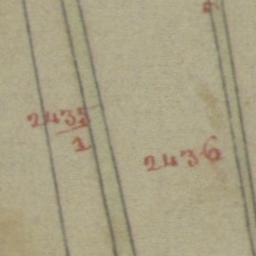 2435
1
2436